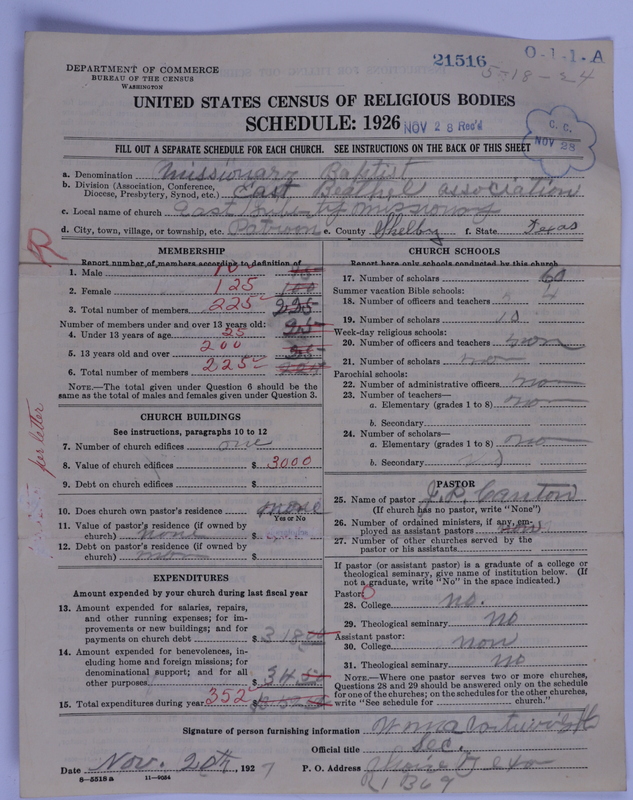 DEPARTMENT OF COMMERCE
BUREAU OF THE CENSUS
WASHINGTON
21516
O-1-1-A
5-18-24
UNITED STATES CENSUS OF RELIGIOUS BODIES
SCHEDULE: 1926
NOV 28 Rec'd
C. C.
NOV 28
FILL OUT A SEPARATE SCHEDULE FOR EACH CHURCH. SEE INSTRUCTIONS ON THE BACK OF THIS SHEET
a. Denomination Missionary Baptist
b. Division (Association, Conference, Diocese, Presbytery, Synod, etc.) East Beathel association
c. Local name of church East Missionary
d. City, town, village, or township, etc. Patroon e. County Shelby f. State Texas
R
per letter
MEMBERSHIP
Report number of members according to definition of
1. Male
2. Female 125 100
3. Total number of members 225 225
Number of members under and over 13 years old:
4. Under 13 years of age 25
5. 13 years old and over 200
6. Total number of members 225
NOTE.—The total given under Question 6 should be the
same as the total of males and females given under Question 3.
CHURCH BUILDINGS
See instructions, paragraphs 10 to 12
7. Number of church edifices one
8. Value of church edifices $ 3000
9. Debt on church edifices $
10. Does church own pastor's residence none
Yes or No
11. Value of pastor's residence (if owned by
church) none $
12. Debt on pastor's residence (if owned by
church) $
EXPENDITURES
Amount expended by your church during last fiscal year
13. Amount expended for salaries, repairs,
and other running expenses; for im-
provements or new buildings; and for
payments on church debt $ 318 00
14. Amount expended for benevolences, in-
cluding home and foreign missions; for
denominational support; and for all
other purposes $ 34 50
15. Total expenditures during year 352 $
CHURCH SCHOOLS
Report here only schools conducted by this church
17. Number of scholars 60
Summer vacation Bible schools:
18. Number of officers and teachers 4
19. Number of scholars 10
Week-day religious schools:
20. Number of officers and teachers non
21. Number of scholars non
Parochial schools:
22. Number of administrative officers non
23. Number of teachers—
a. Elementary (grades 1 to 8) non
b. Secondary
24. Number of scholars—
a. Elementary (grades 1 to 8) non
b. Secondary
PASTOR
25. Name of pastor J. P. Canton
(If church has no pastor, write "None")
26. Number of ordained ministers, if any, em-
ployed as assistant pastors
27. Number of other churches served by the
pastor or his assistants
If pastor (or assistant pastor) is a graduate of a college or
theological seminary, give name of institution below. (If
not a graduate, write "No" in the space indicated.)
Pastor: O
28. College no.
29. Theological seminary no
Assistant pastor:
30. College non
31. Theological seminary no
NOTE.—Where one pastor serves two or more churches,
Questions 28 and 29 should be answered only on the schedule
for one of the churches; on the schedules for the other churches,
write "See schedule for church."
Signature of person furnishing information
Official title Sec.
Date Nov. 20th, 1927 P. O. Address
8—5518 a 11—9084